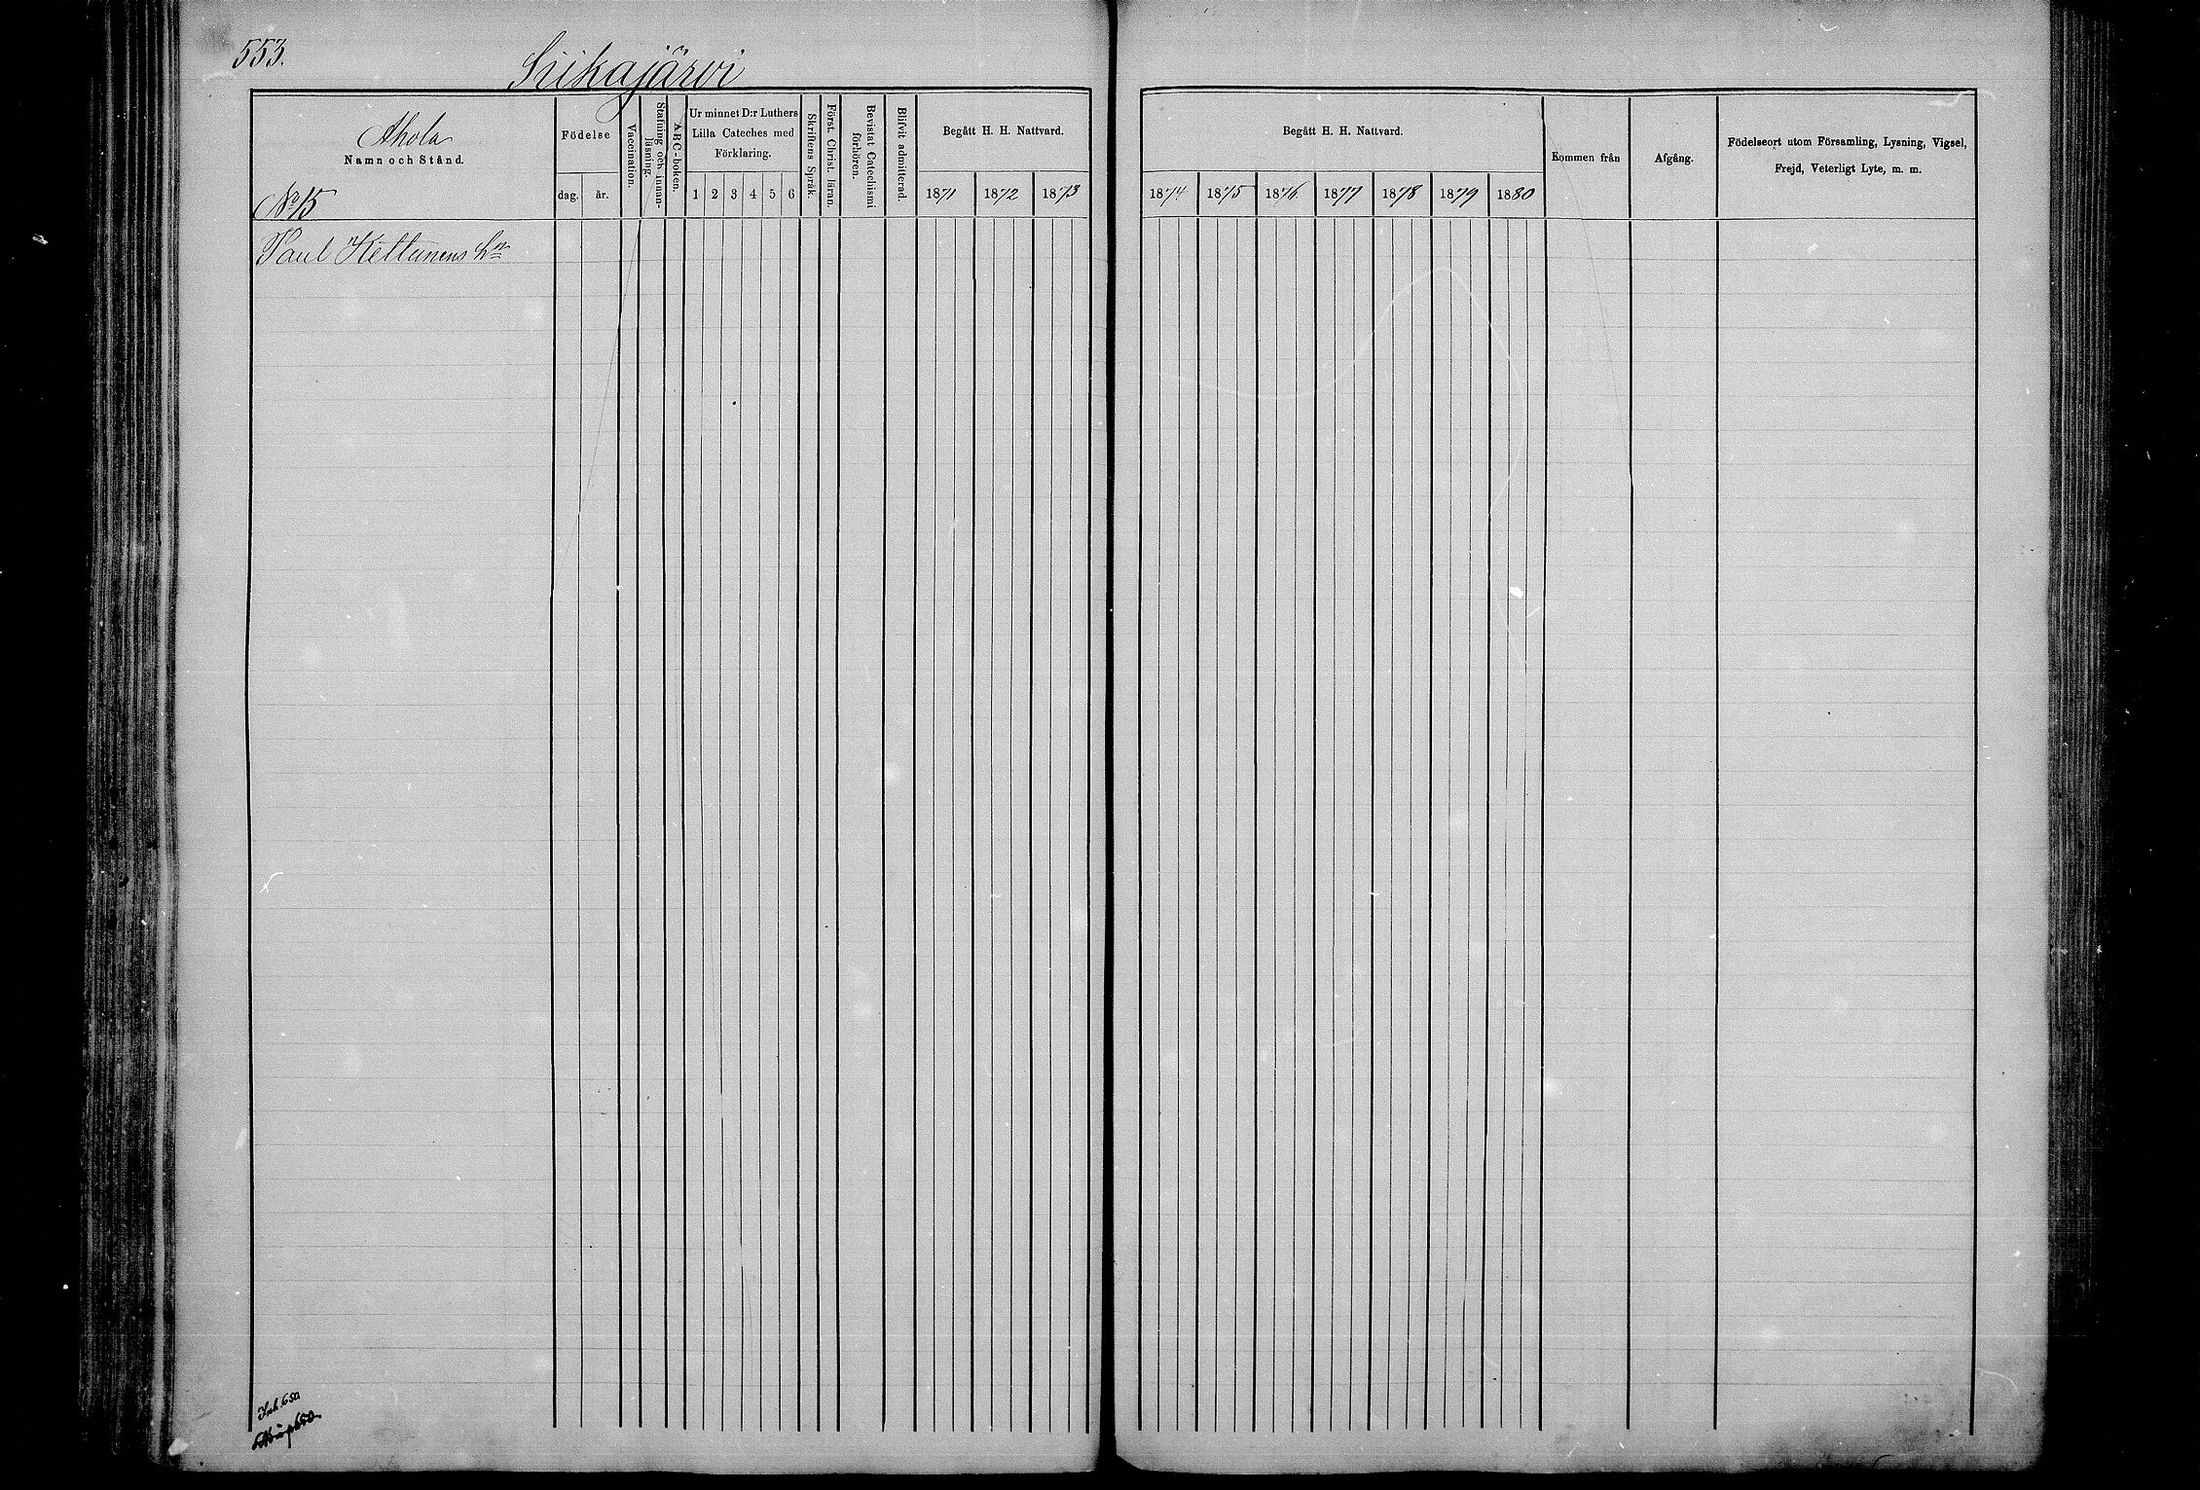 553.
Siikajärvi
Ahola
Namn och Stånd.
No 15
Födelse
dag. år.
Vaccination.
Stafning och innan-
läsning.
ABC-boken.
Ur minnet D:r Luthers
Lilla Cateches med
Förklaring.
1 2 3 4 5 6
Skriftens Språk.
Först. Christ. läran.
Bevistat Catechismi
förhören.
Blifvit admitterad.
Begått H. H. Nattvard.
1871 1872 1873
Begått H. H. Nattvard.
1874 1875 1876 1877 1878 1879 1880
Kommen från
Afgång.
Födelseort utom Församling, Lysning, Vigsel,
Frejd, Veterligt Lyte, m. m.
Paul Kettunens hn
650